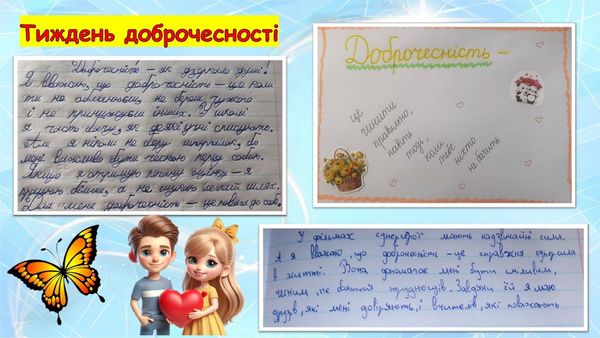 Тиждень доброчесності
Доброчесність – як дзеркало душі!
Я вважаю, що доброчесність – це коли
ти не обманюєш, не береш чужого
і не принижуєш інших. У школі
я часто бачу, як деякі учні списують.
Але я ніколи не беру шпаргалок, бо
мені важливо бути чесною перед собою.
Якщо я отримую погану оцінку – я
працюю більше, а не шукаю легкий шлях.
Для мене доброчесність – це повага до себе.
Доброчесність –
Це
чинити
правильно,
навіть
тоді,
коли
тебе
ніхто
не бачить
У фільмах супергерої мають надзвичайні сили.
А я вважаю, що доброчесність – це справжня суперсила
в житті. Вона допомагає мені бути сміливим,
чесним, не боятися труднощів. Завдяки їй я маю
друзів, які мені довіряють, і вчителів, які поважають